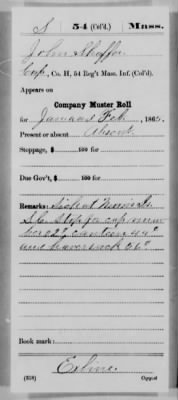 S | 54 (Col'd.) | Mass.
John Shaffer
Corp, Co. H, 54 Reg't Mass. Inf. (Col'd).
Appears on
Company Muster Roll
for Jan and Feb, 1865.
Present or absent Absent
Stoppage, $ 100 for
Due Gov't, $ 100 for
Remarks: Sick at
S.C. Stop for
canteen 44¢
and haversack 56¢
Book mark:
Exline
(358) Copyist